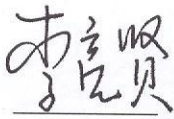 李亮贤